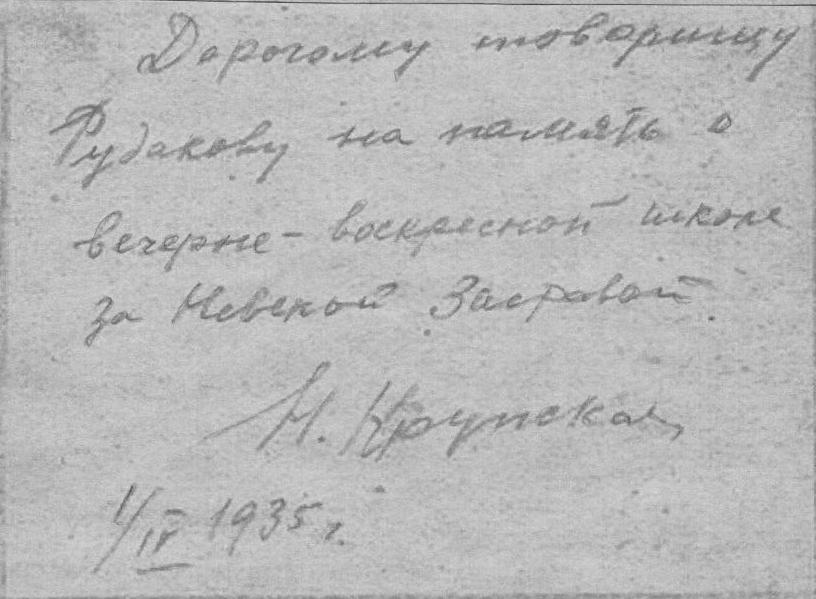 Дорогому товарищу
Рудакову на память о
вечерне-воскресной школе
за Невской Заставой.
Н. Крупская
1/IV 1935 г.